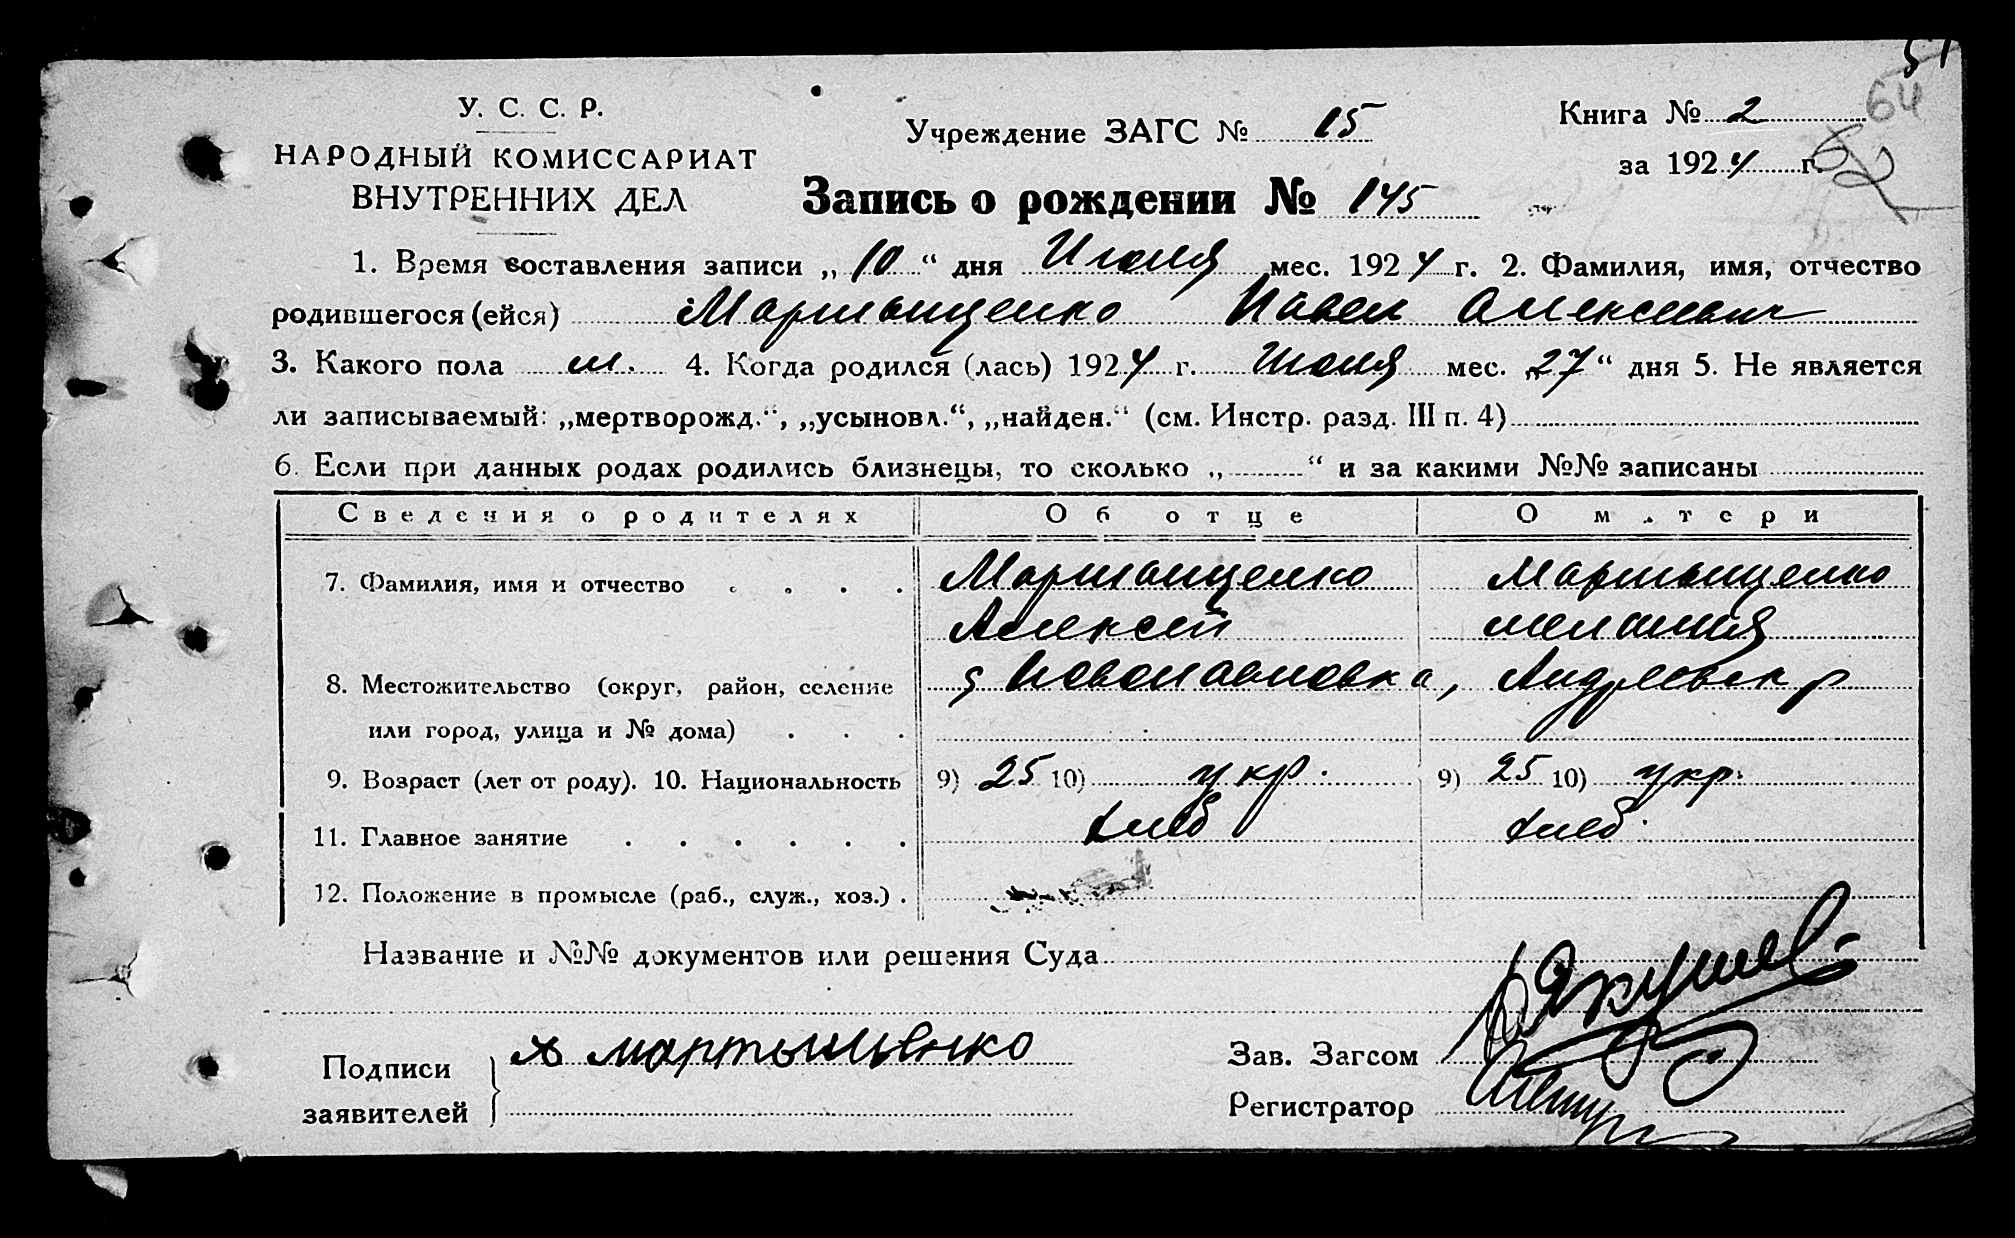 51
64
У. С. С. Р.
НАРОДНЫЙ КОМИССАРИАТ
ВНУТРЕННИХ ДЕЛ
Учреждение ЗАГС № 15
Книга № 2
за 1924 г.
Запись о рождении № 145
1. Время составления записи „10“ дня Июля мес. 1924 г. 2. Фамилия, имя, отчество
родившегося (ейся) Мартыщенко Павел Алексеевич
3. Какого пола м. 4. Когда родился (лась) 1924 г. Июня мес. „27“ дня 5. Не является
ли записываемый: „мертворожд.“, „усыновл.“, „найден.“ (см. Инстр. разд. III п. 4)
6. Если при данных родах родились близнецы, то сколько „ “ и за какими №№ записаны
Сведения о родителях Об отце О матери
7. Фамилия, имя и отчество Мартыщенко Мартыщенко
Алексей Мелания
8. Местожительство (округ, район, селение Новопавловка, Андреевск р
или город, улица и № дома)
9. Возраст (лет от роду). 10. Национальность 9) 25 10) укр. 9) 25 10) укр.
11. Главное занятие хлеб хлеб.
12. Положение в промысле (раб., служ., хоз.)
Название и №№ документов или решения Суда
Подписи
заявителей
Мартыщенко
Зав. Загсом
Регистратор